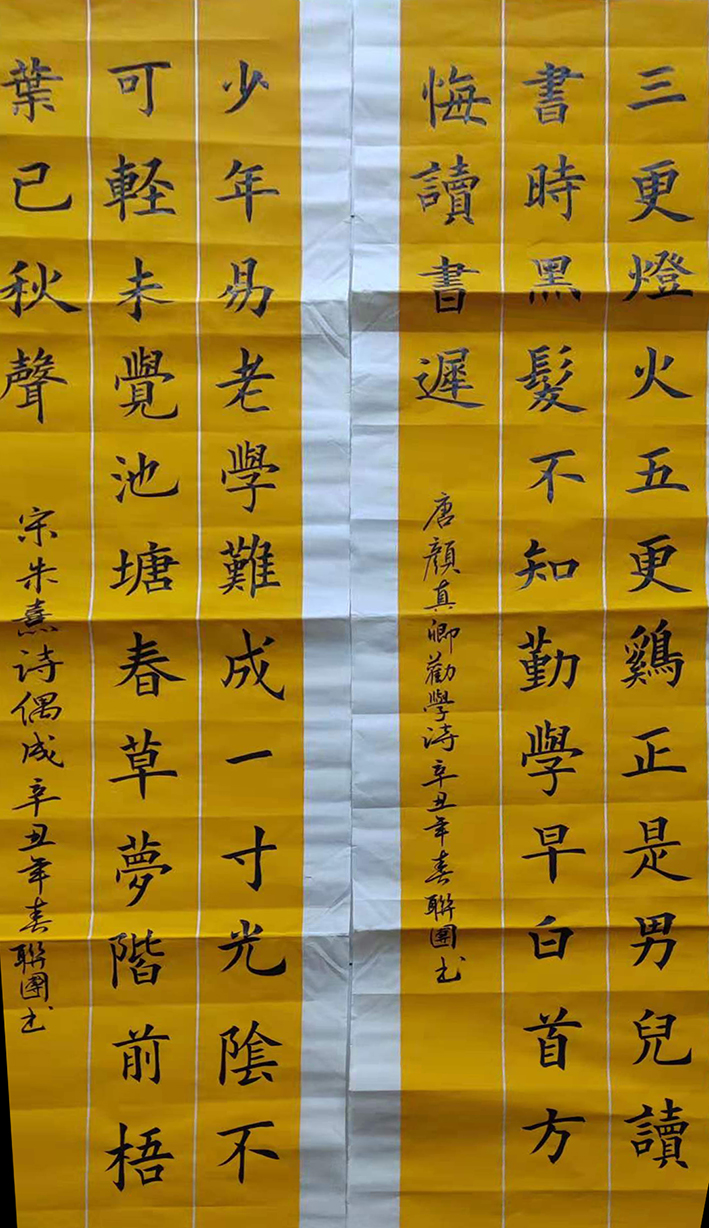 三更燈火五更鷄正是男兒讀
書時黑髮不知勤學早白首方
悔讀書遲
唐顏真卿勸學诗辛丑年春聯團书
少年易老學難成一寸光陰不
可軽未覺池塘春草夢階前梧
葉已秋聲
宋朱熹诗偶成辛丑年春聯團书